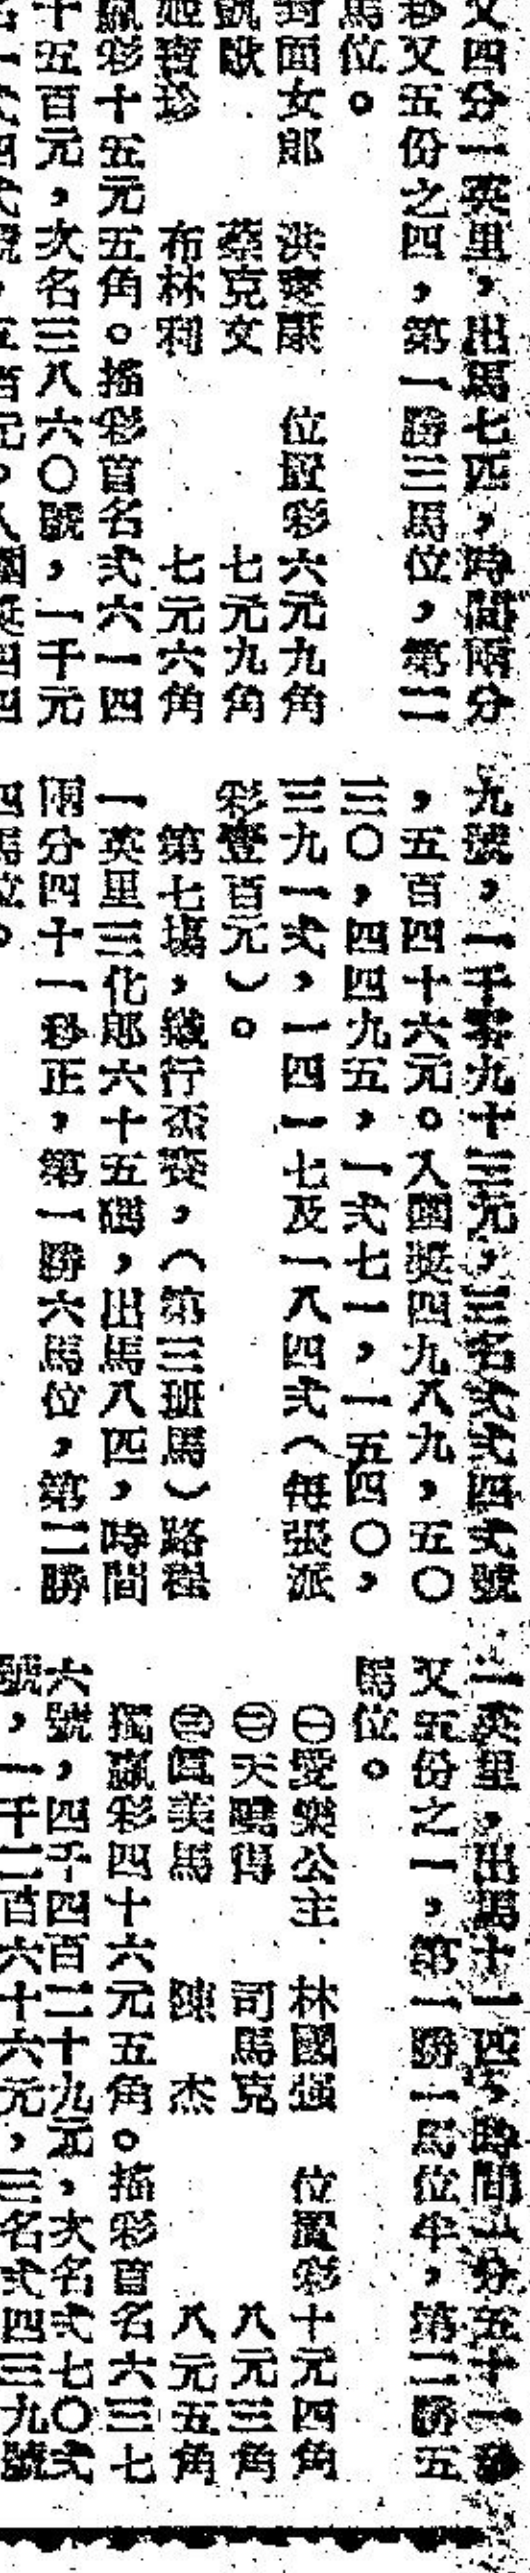 又四分一英里，出馬七匹，時間兩分
秒又五份之四，第一勝三馬位，第二
馬位。
封面女郎　洪　　位置彩六元九角
凱歐　蔡克文　七元九角
姬寶珍　布林利　七元六角
贏彩十五元五角。搖彩首名弍六一四
十五百元，次名三八六〇號，一千元
四弍號，五百元。入圍奬四四
九號，一千零九十三元，三名弍弍四弍號
，五百四十六元。入圍奬四九八九，五〇
三〇，四四九五，一弍七一，一五四〇，
三九一弍，一四一七及一八四弍（每張派
彩壹百元）。
第七塲，鐵行盃賽，（第三班馬）路程
一英里三化郎六十五碼，出馬八匹，時間
兩分四十一秒正，第一勝六馬位，第二勝
四馬位。
一英里，出馬十一匹，時間一分五十一秒
又五份之一，第一勝一馬位半，第二勝五
馬位。
㊀愛樂公主　林國强　位置彩十元四角
㊁天賜得　司馬克　八元三角
㊂眞美馬　陳　杰　八元五角
獨贏彩四十六元五角。搖彩首名六三七
六號，四千四百二十九元，次名弍七〇弍
號，一千二百六十六元，三名弍四三九號